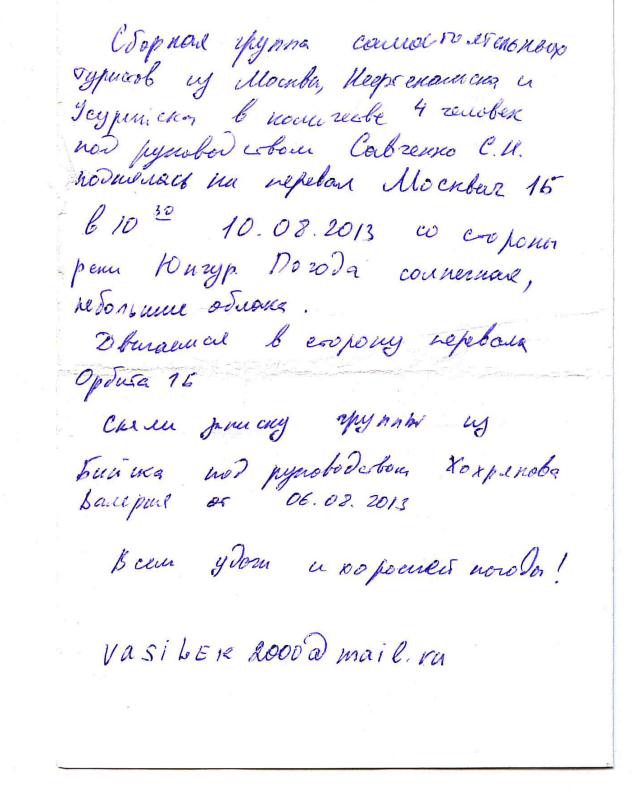 Сборная группа самостоятельных
туристов из Москвы, Нефтекамска и
Усурийска в количестве 4 человек
под руководством Савченко С.И.
поднялась на перевал Москвич 1Б
в 10 30 10.08.2013 со стороны
реки Юнгур. Погода солнечная,
небольшие облака.
Двигаемся в сторону перевала
Орбита 1Б
Сняли записку группы из
Бийска под руководством Хохрянова
Валерия от 06.08.2013
Всем удачи и хорошей погоды!
VASiLEK2000@mail.ru